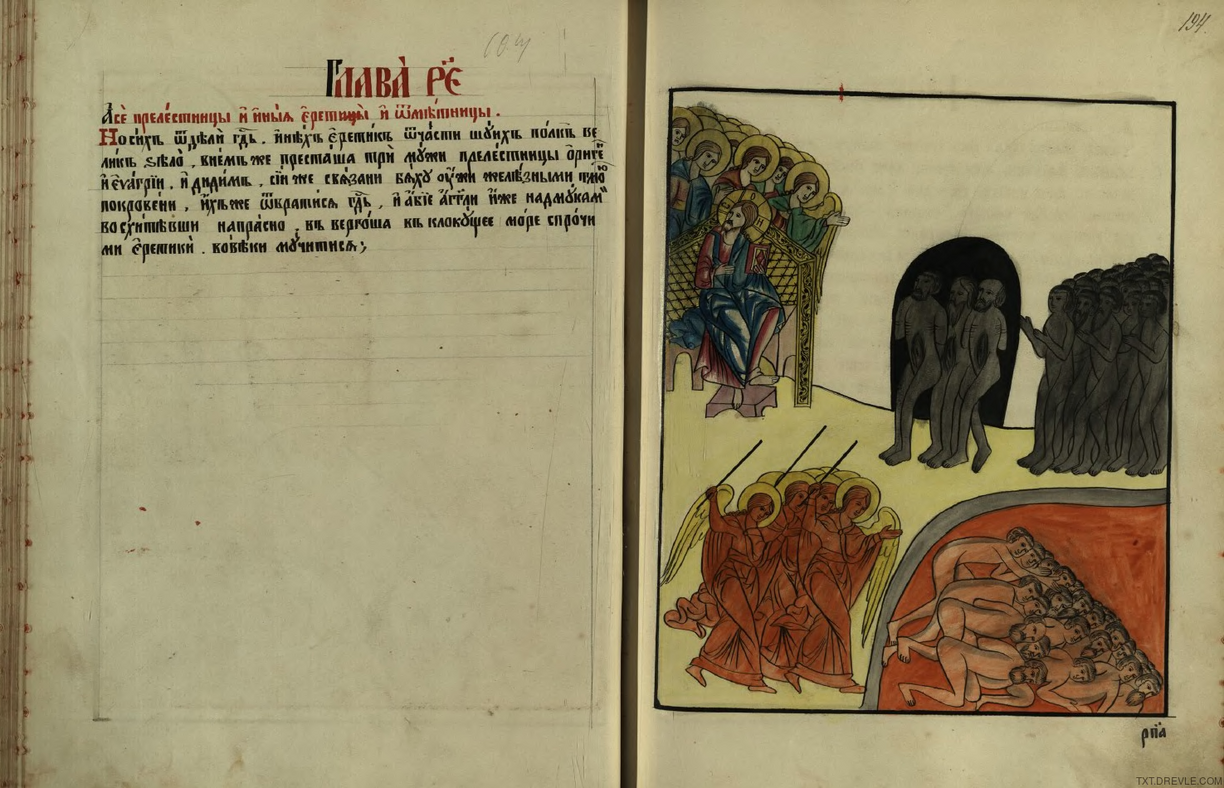 Глава̀ р҃е
А сѐ прелє́стницы и҆ и҆ны́ѧ є҆ретицы̀ и҆ ѿмѣ́тницы .
Но си́хъ ѿдѣлѝ гд҇ь . и҆нѣ́хъ є҆рети́къ ѿча́сти шꙋ́ихъ по́лкъ ве
ли́къ ѕѣлѡ̀ . вне́мъ же преста́ша трѝ мꙋ́жи преле́стницы ѻ҆риге́
и҆ є҆ѵа́грїи . и҆ диди́мъ . сїи же свѧ́зани бѧ́хꙋ ᲂу҆́жи желѣ́зными
покрове́ни . и҆́хъ же ѿврати́сѧ гд҇ь , и҆ а҆́бїе а҆́гг҃ли и҆́же над мꙋ́кам
восхити́вши напра́сно . въ верго́ша въ клоко́щее мо́ре спро́чи
ми є҆ретикѝ . во вѣ́ки мꙋ́читисѧ ;
194
рп҃а
TXT.DREVLE.COM